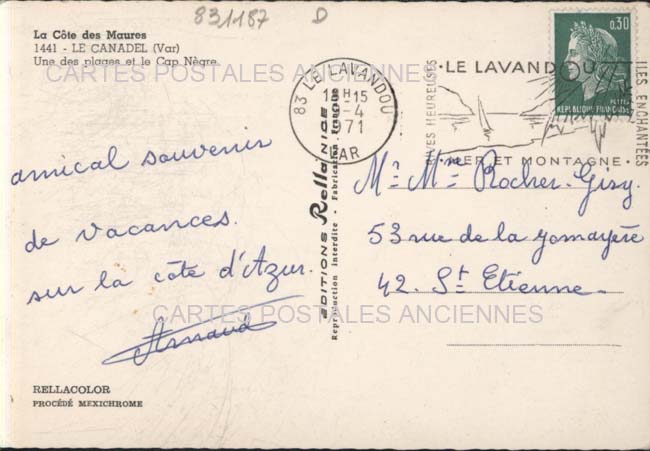 831187 D
La Côte des Maures
1441 - LE CANADEL (Var)
Une des plages et le Cap Nègre
CARTES POSTALES ANCIENNES
amical souvenir
de vacances.
sur la côte d'Azur.
Arnaud
CARTES POSTALES ANCIENNES
RELLACOLOR
PROCÉDÉ MEXICHROME
EDITIONS Rella NICE
Reproduction Interdite - Fabrication Française
83 LE LAVANDOU
VAR
-4
1971
•LE LAVANDOU•
ILES ENCHANTÉES
MER ET MONTAGNE
0,30
POSTES
REPUBLIQUE FRANÇAISE
Mr Mme Rocher-Gisy.
53 rue de la
42. St Etienne